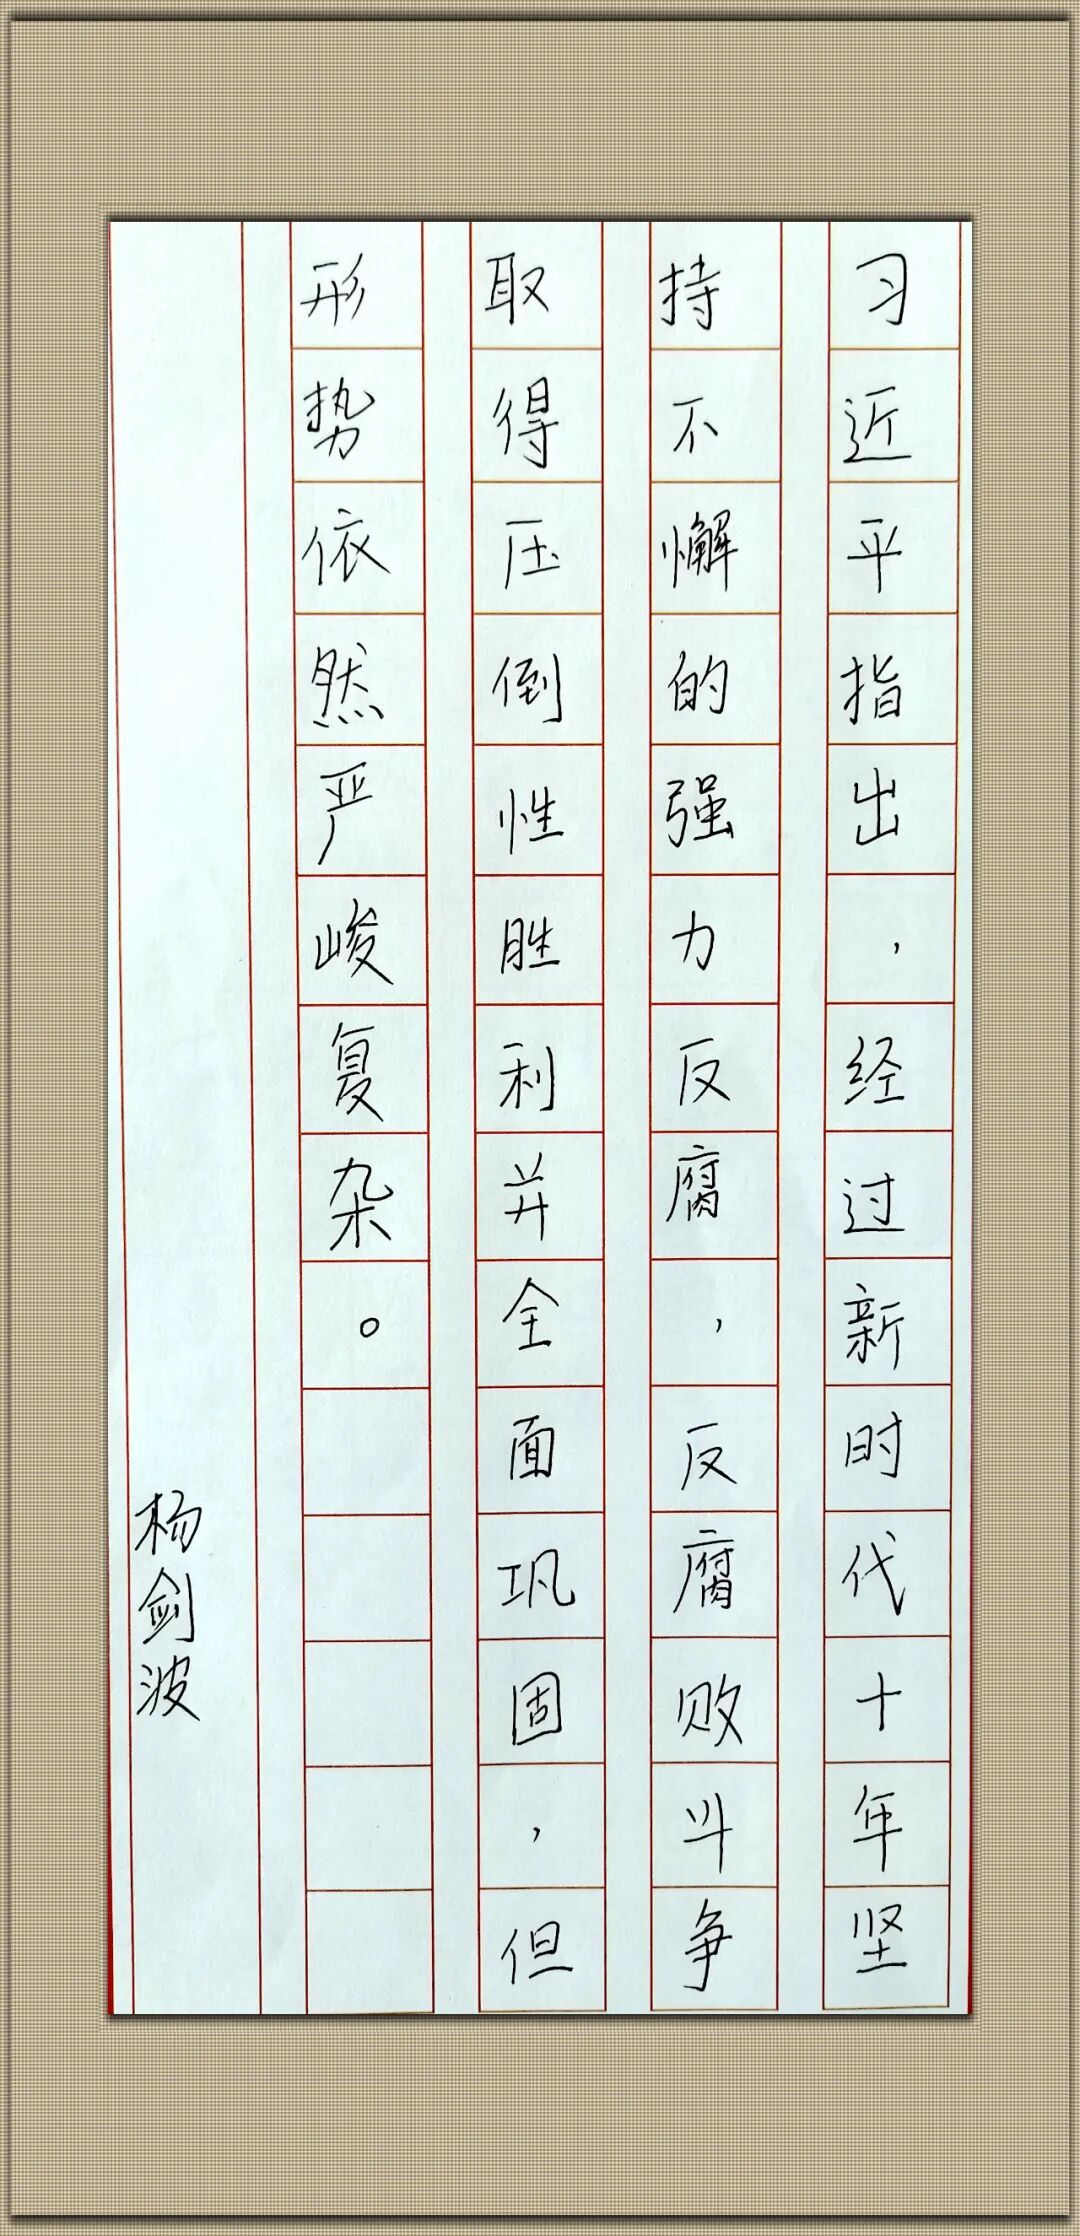 习近平指出，经过新时代十年坚
持不懈的强力反腐，反腐败斗争
取得压倒性胜利并全面巩固，但
形势依然严峻复杂。
杨剑波